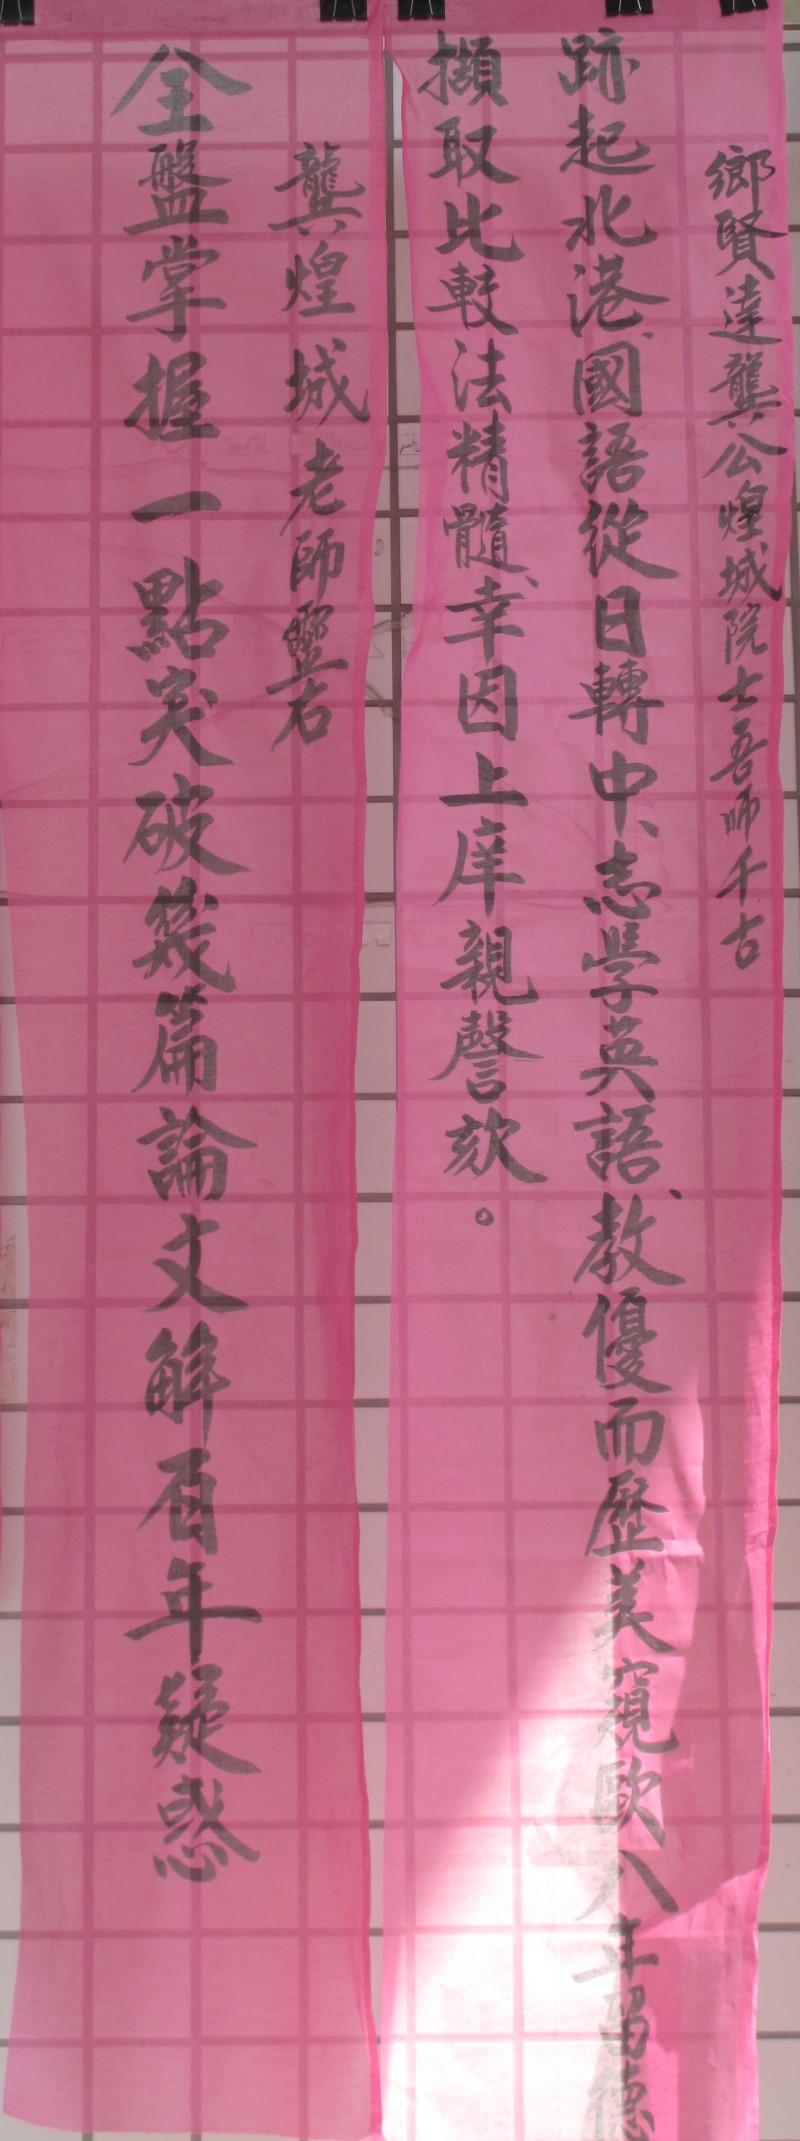 鄉賢達龔公煌城院士吾師千古
跡起北港國語從日轉中、志學英語、教優而歷美窺歐八年留德
擷取比較法精髓、幸因上庠親謦欬。
龔煌城老師靈右
全盤掌握一點突破幾篇論文解百年疑惑